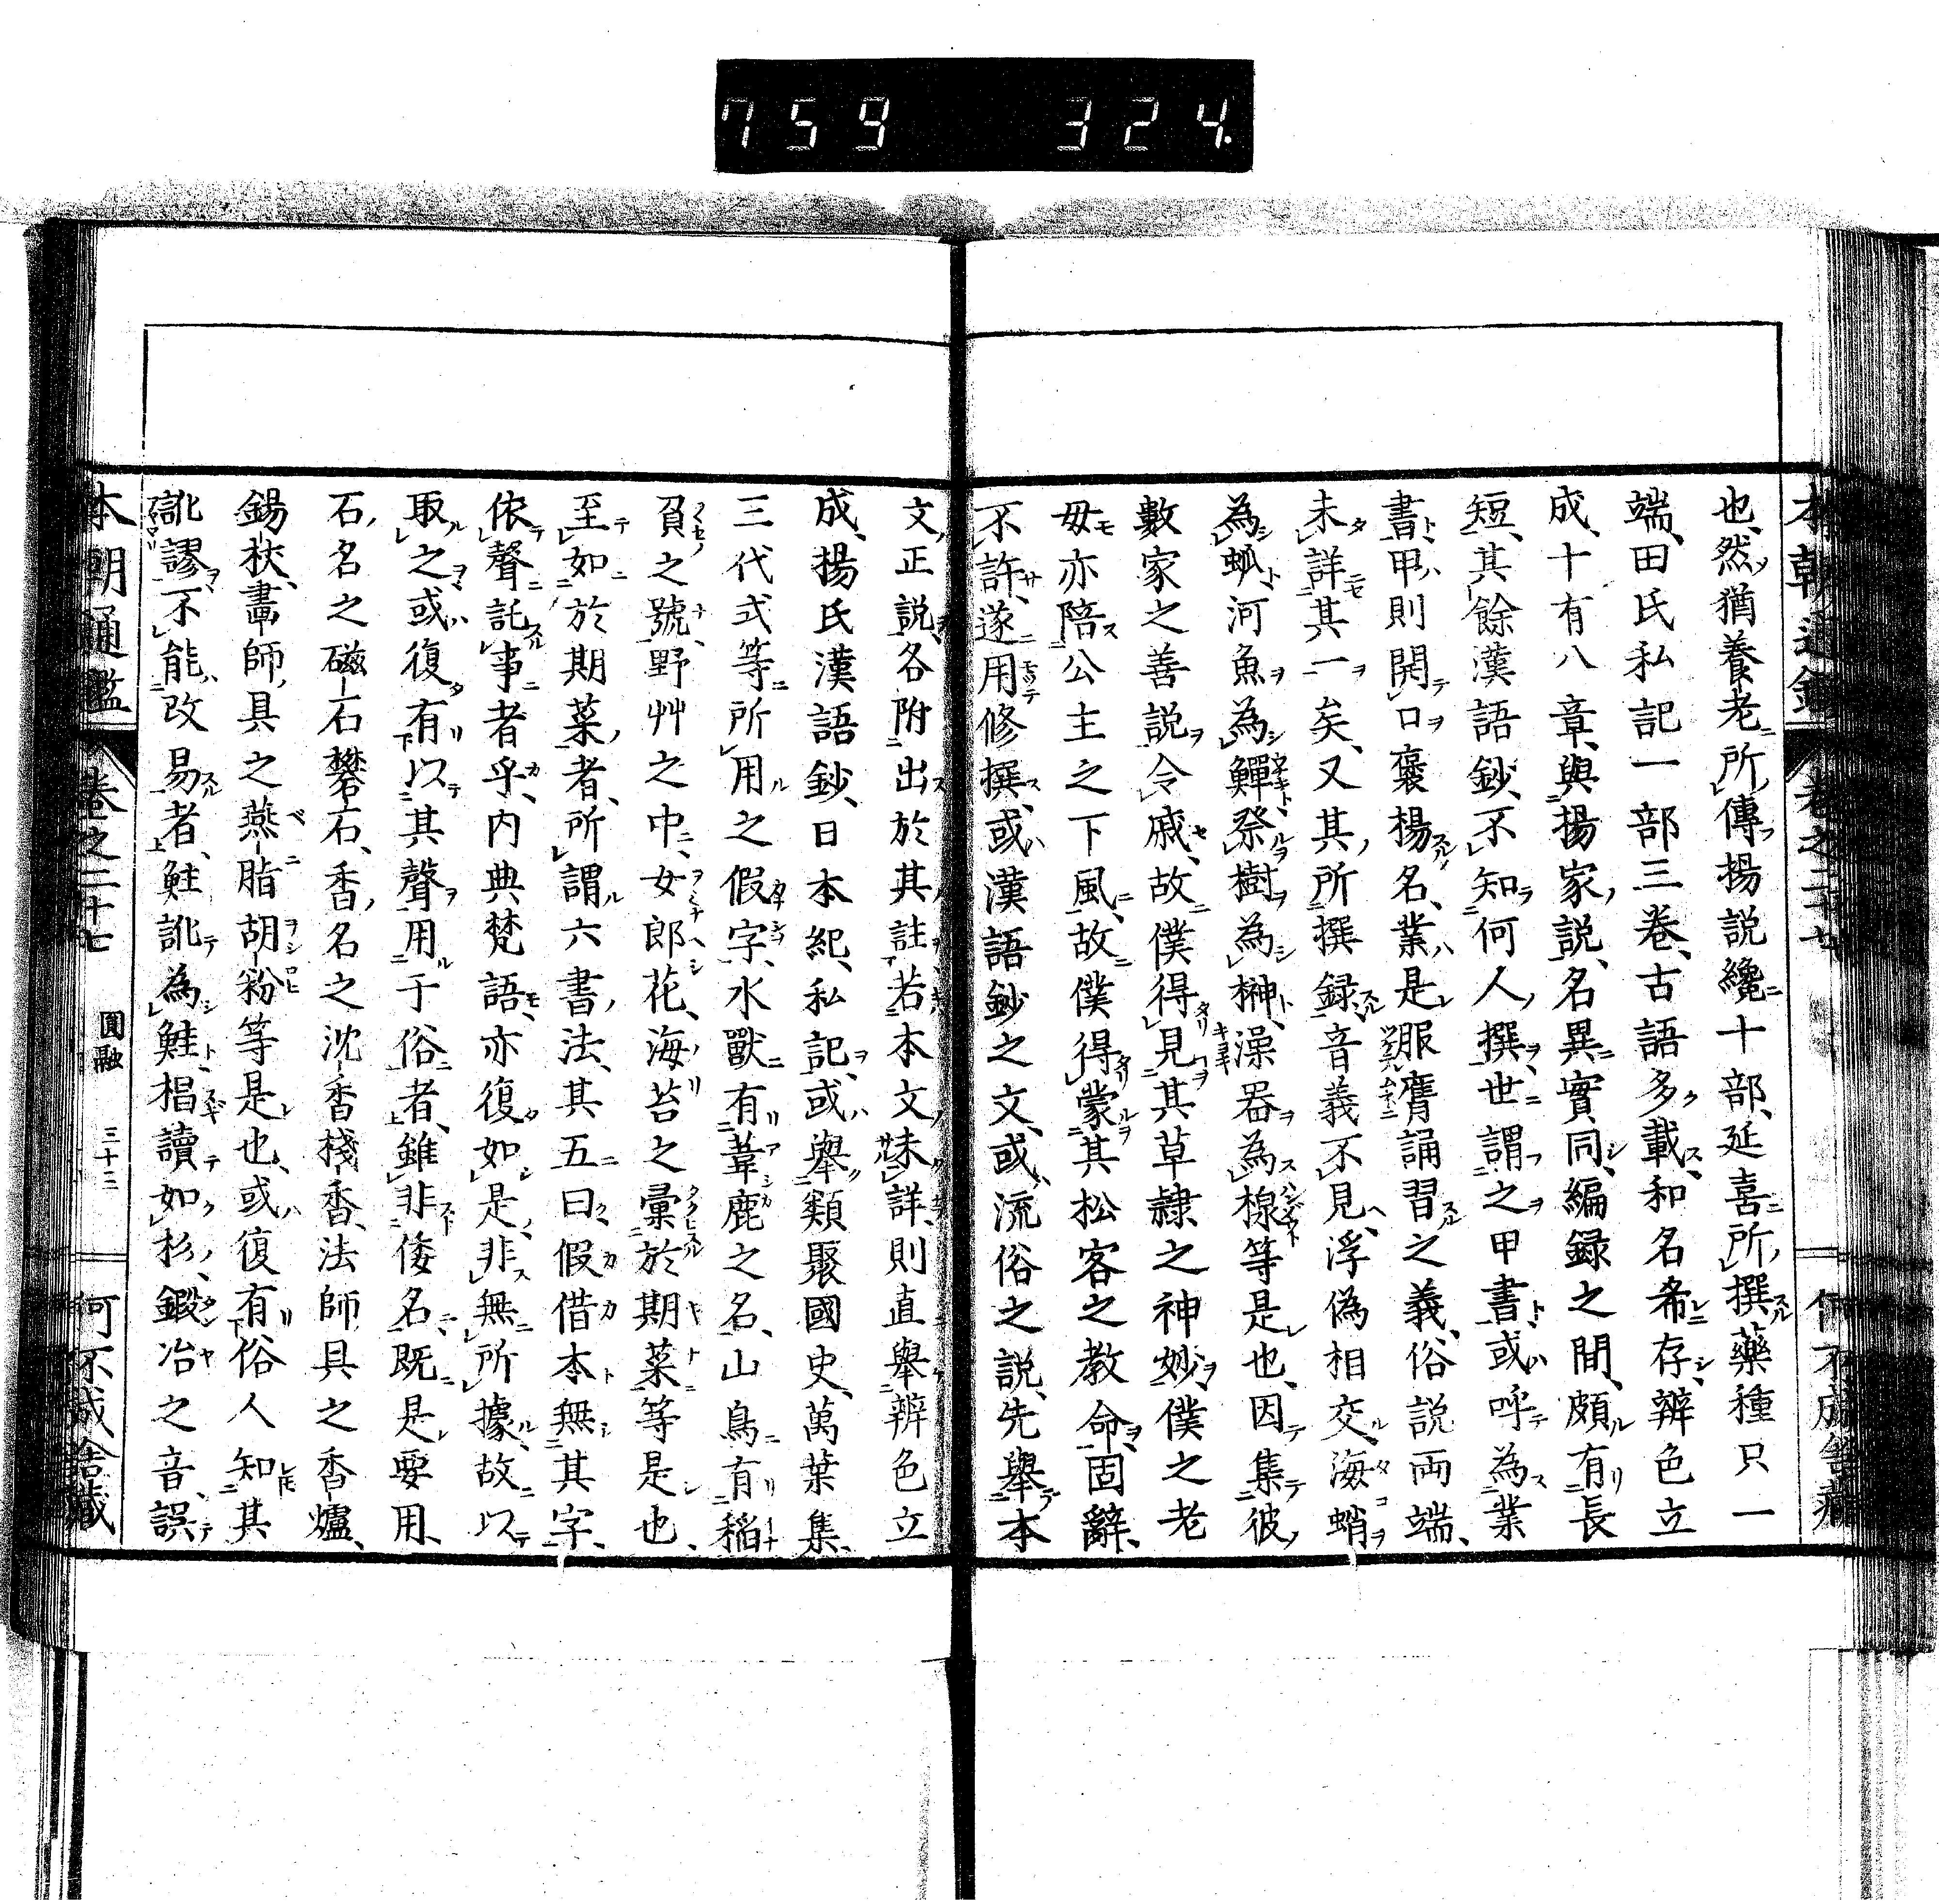 759 324.
也、然猶養老所傳揚説纔十部、延喜所撰藥種只一
端、田氏私記一部三卷、古語多載和名希存、辨色立
成、十有八章、與揚家説、名異實同、編録之間、頗有長
短、其餘漢語鈔、不知何人撰、世謂之甲書、或呼為業
書、甲則開口褒揚名、業是服膺誦習之義、俗説両端、
未詳其一矣、又其所撰録、音義不見、浮偽相交、海蛸
為䖣、河魚為鱓、祭樹為榊、澡器為楾等是也、因集彼
數家之善説、令戚、故僕得見其草隷之神妙、僕之老
毋亦陪公主之下風、故僕得蒙其松客之教命、固辭、
不許、遂用修撰、或漢語鈔之文、或流俗之説、先舉本
文正説、各附出於其註、若本文未詳、則直舉辨色立
成、揚氏漢語鈔、日本紀、私記、或舉類聚國史、萬葉集、
三代式等所用之假字、水獸有葦鹿之名、山鳥有稲
負之號、野艸之中、女郎花、海苔之彙於期菜等是也、
至如於期菜者、所謂六書法、其五曰假借、本無其字、
依聲託事者乎、内典梵語、亦復如是、非無所據、故以
取之、或復有以其聲用于俗者、雖非倭名、既是要用、
石名之磁石礬石、香名之沈香栈香、法師具之香爐、
錫杖、畫師具之燕脂胡粉等是也、或復有俗人知其
訛謬、不能改易者、鮏訛為鮭、椙讀如杉、鍛冶之音、誤
本朝通鑑 卷之二十七 圓融 三十二 何不成舎藏